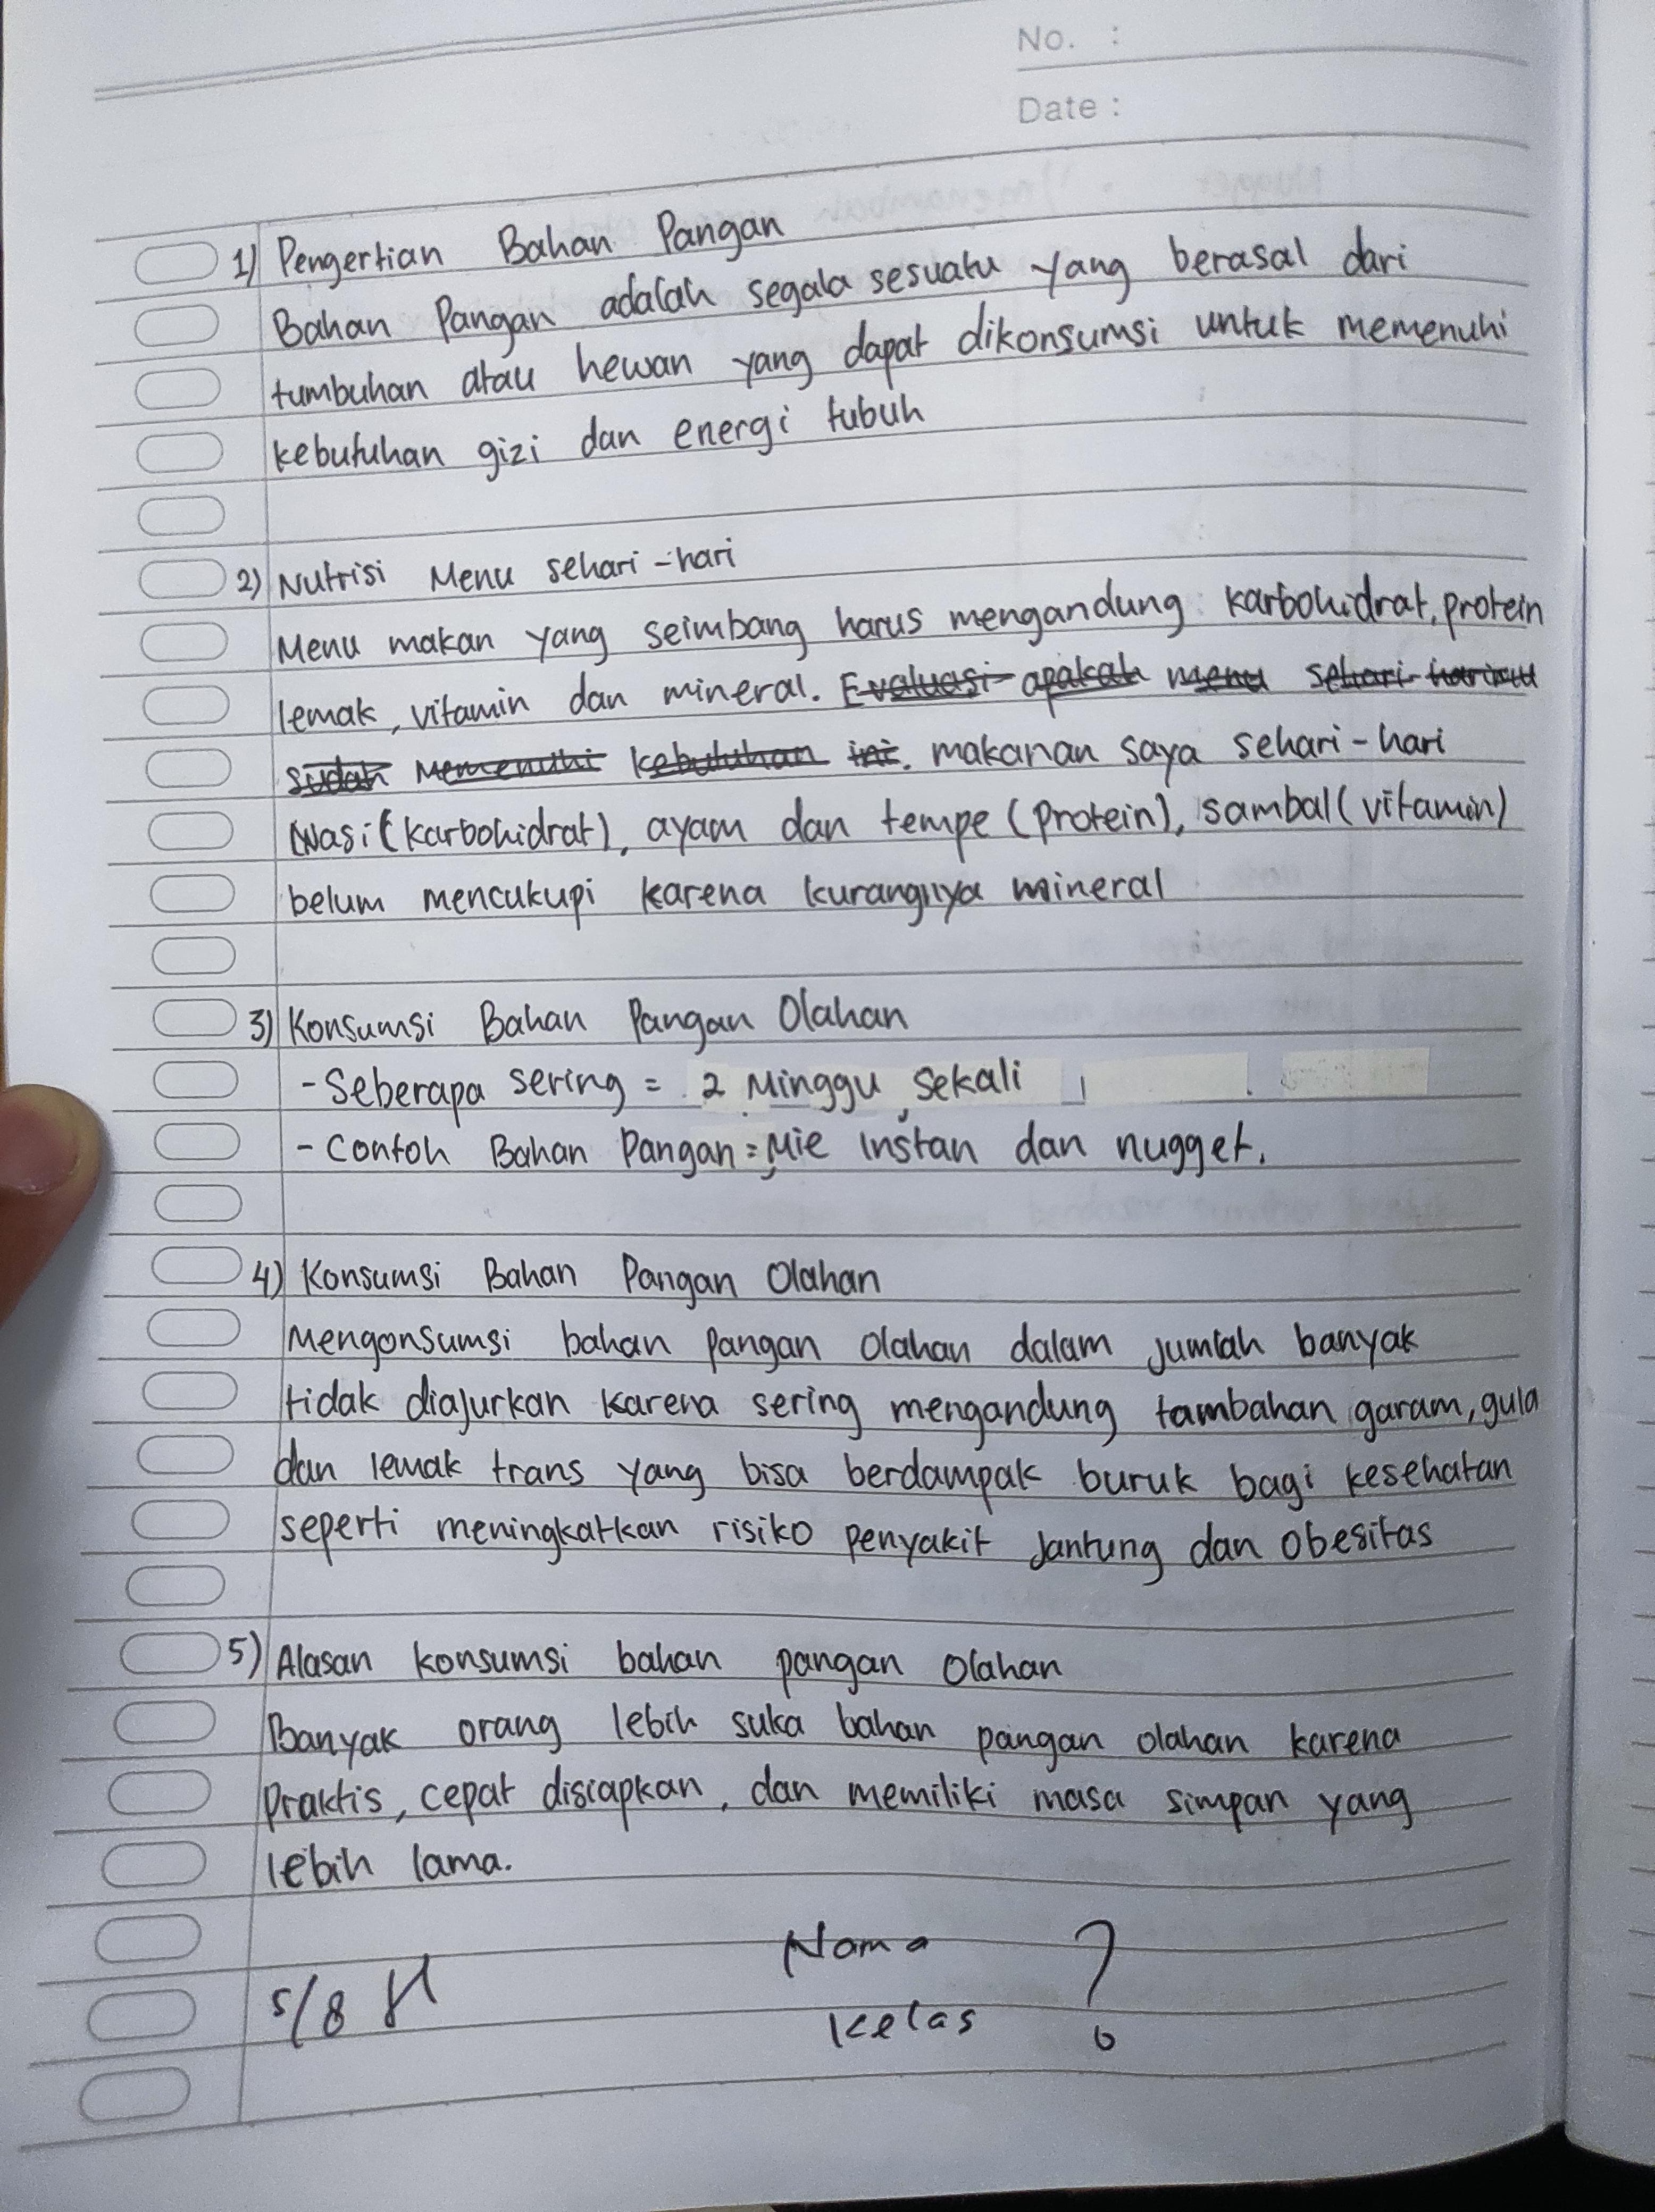 No. :
Date :
1) Pengertian Bahan Pangan
Bahan Pangan adalah segala sesuatu yang berasal dari
tumbuhan atau hewan yang dapat dikonsumsi untuk memenuhi
kebutuhan gizi dan energi tubuh
2) Nutrisi Menu sehari-hari
Menu makan yang seimbang harus mengandung karbohidrat, protein
lemak, vitamin dan mineral. Evaluasi apakah menu sehari-harimu
sudah memenuhi kebutuhan ini. makanan saya sehari-hari
Nasi (karbohidrat), ayam dan tempe (protein), sambal (vitamin)
belum mencukupi karena kurangnya mineral
3) Konsumsi Bahan Pangan Olahan
- Seberapa sering = 2 Minggu sekali
- Contoh Bahan Pangan = Mie instan dan nugget.
4) Konsumsi Bahan Pangan Olahan
Mengonsumsi bahan pangan olahan dalam jumlah banyak
tidak diajurkan karena sering mengandung tambahan garam, gula
dan lemak trans yang bisa berdampak buruk bagi kesehatan
seperti meningkatkan risiko penyakit jantung dan obesitas
5) Alasan konsumsi bahan pangan olahan
Banyak orang lebih suka bahan pangan olahan karena
Praktis, cepat disiapkan, dan memiliki masa simpan yang
lebih lama.
Nama ?
5/8
Kelas